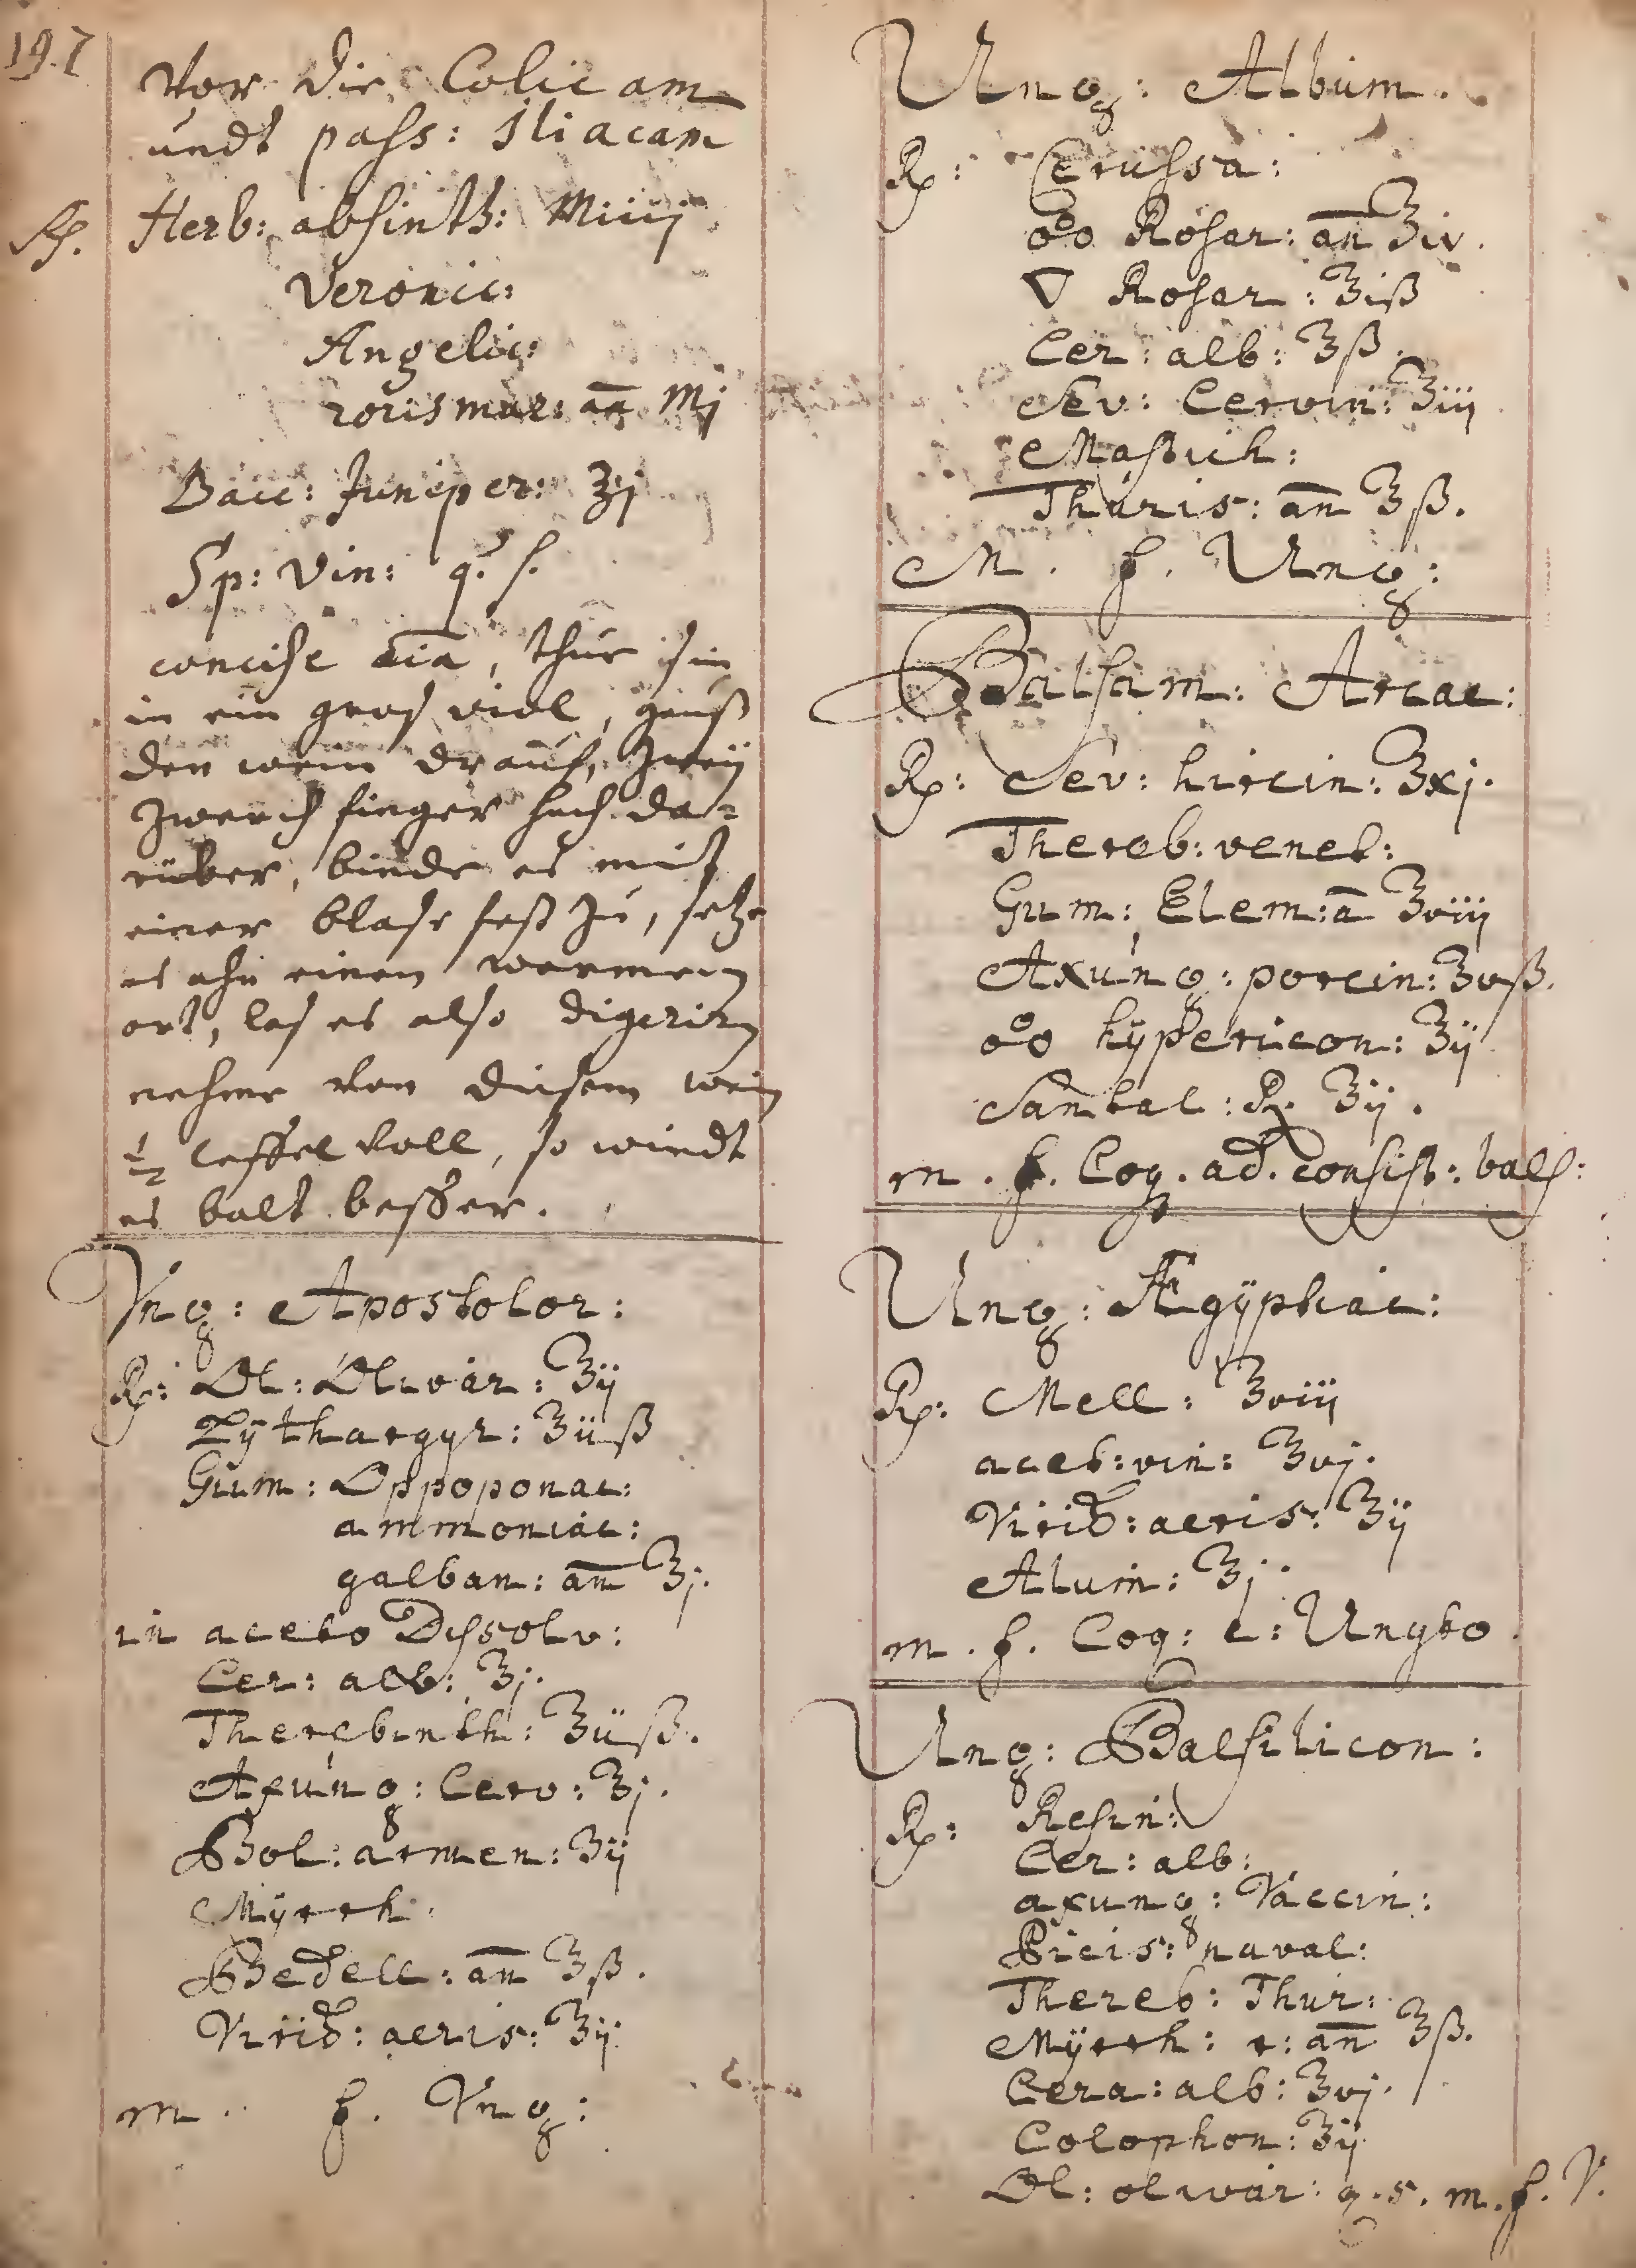 197
Vor die Colicam
undt pass: Iliacam
Rp. Herb: absinth: Miiij
Veronic:
Angelic:
rorismar: an̄ Mj
Bacc: Juniper: ℥j
Sp: Vin: q. s.
concise o͞ia, thue sie in
in ein gros viol, geuß
den wein drauf, zweÿ
zwerch finger hoch da-
rüber, binde es mit
einer blase fest zu, setze
es ahn einen warmen
ort, las es also digerirn
nehme von diesem wein
½ leffel voll, so wirdt
es balt besser.
Vng: Apostolor:
Rp: Ol: Olivar: ℥ij
Lÿthargyr: ℥iiß
Gum: Oppoponac:
ammoniac:
galban: an̄ ℥j.
in aceto Dissolv:
Cer: alb: ℥j.
Therebinth: ℥iiß.
Axung: Cerv: ℥j.
Bol: armen: ℥ij
Mÿrrh:
Bedell: an̄ ℥ß.
Virid: aeris: ℥ij
m. f. Vng:
Ung: Album.
Rp: Cerussa:
o͡o Rosar: an̄ ℥iv.
▽ Rosar: ℥iß
Cer: alb: ℥ß.
Sev: Cervin: ℥iij
Mastich:
Thuris: an̄ ℥ß.
M. f. Ung:
Balsam: Arcae:
Rp: Sev: hircin: ℥xj.
Thereb: venet:
Gum: Elem: a̅ ℥viij
Axung: porcin: ℥vß.
o͡o hÿpericon: ℥ij
Santal: R. ℥ij.
m. f. Coq. ad. consist: bals:
Ung: Ægÿptiac:
Rp: Mell: ℥viij
acet: vin: ℥vj.
Virid: aeris: ℥ij
Alum: ℥j.
m. f. Coq: e: Ungto
Ung: Balsilicon:
Rp: Resin:
Cer: alb:
axung: Vaccin:
Picis: naval:
Thereb: Thur:
Mÿrrh: r: an̄ ℥ß.
Cera: alb: ℥vj.
Colophon: ℥ij
Ol: olivar: q. s. m. f. V.